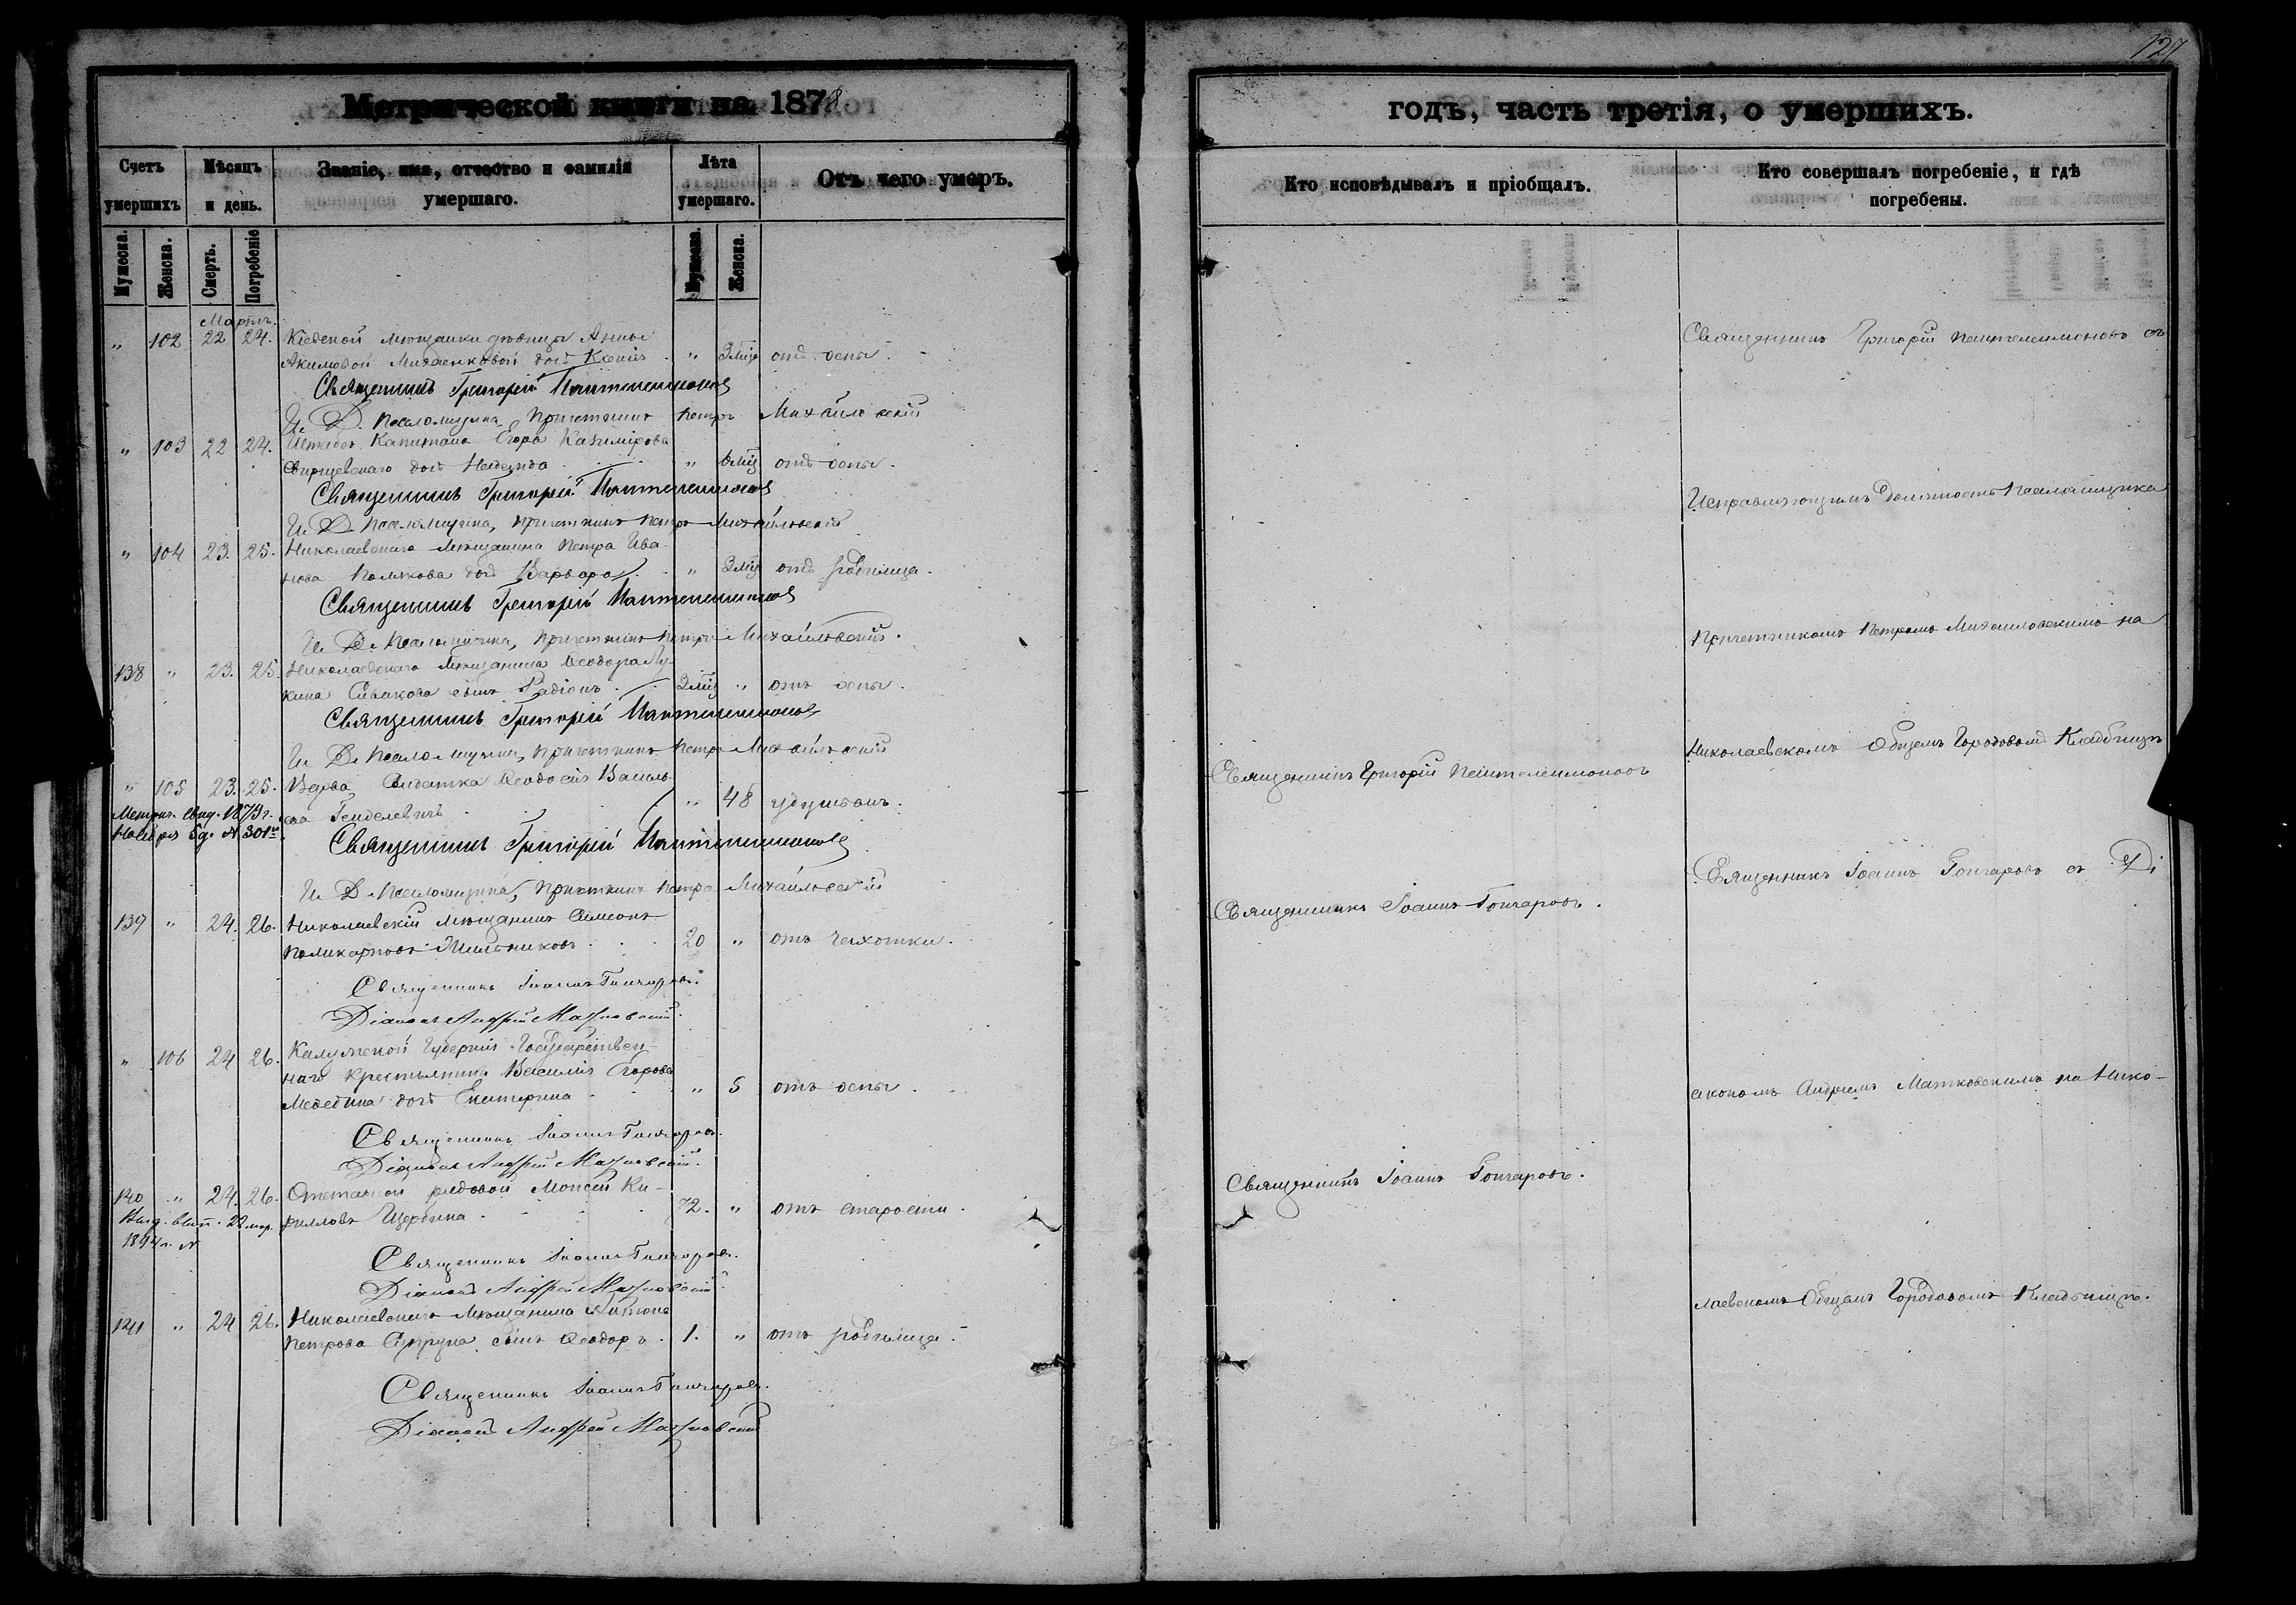 127
Метрической книги на 1878
годъ, часть третія, о умершихъ.
Счетъ умершихъ
Мѣсяцъ и день.
Званіе, имя, отчество и фамилія умершаго.
Лѣта умершаго.
Отъ чего умеръ.
Кто исповѣдывалъ и пріобщалъ.
Кто совершалъ погребеніе, и гдѣ погребены.
Мужеска.
Женска.
Смерть.
Погребеніе
Мужеска.
Женска.
Мартъ.
" 102 22 24. Кіевской мѣщанки дѣвицы Анны
Акимовой дочь Ксенія " 3 мѣц отъ оспы.
Священникъ Григорій Пантелеимоновъ
И. Д. Псаломщика, Причетникъ Петръ Михайловскій
" 103 22 24. Штабсъ Капитана Егора Казимірова
дочь Надежда " 6 мѣц отъ оспы.
Священникъ Григорій Пантелеимоновъ
И. Д. Псаломщика, Причетникъ Петръ Михайловскій
" 104 23. 25. Николаевскаго мѣщанина Петра Ива-
нова Полякова дочь Варвара " 3 мѣц отъ родимца.
Священникъ Григорій Пантелеимоновъ
И. Д. Псаломщика, Причетникъ Петръ Михайловскій.
138 " 23. 25. Николаевскаго мѣщанина Ѳеодора Лу-
кина Сивакова сынъ Радіонъ 3 мѣц " отъ оспы.
Священникъ Григорій Пантелеимоновъ
И. Д. Псаломщика, Причетникъ Петръ Михайловскій
" 105 23. 25. Вдова, Солдатка Ѳеодосія Василь-
ева " 48 удушьемъ.
Метрич. свид. 1879 г.
Ноября 5 д. № 301
Священникъ Григорій Пантелеимоновъ
И. Д. Псаломщика, Причетникъ Петръ Михайловскій
139 " 24. 26. Николаевскій мѣщанинъ Симеонъ
Поликарповъ Мельниковъ 20 " отъ чахотки.
Священникъ Іоаннъ Гончаровъ.
Діаконъ Андрей Матковскій.
" 106 24 26. Калужской Губерніи Государствен-
наго крестьянина Василія Егорова
дочь Екатерина " 5 отъ оспы.
Священникъ Іоаннъ Гончаровъ.
Діаконъ Андрей Матковскій.
140 " 24. 26. Отставной рядовой Моисей Ки-
рилловъ Щербина 72. " отъ старости.
22 мар.
1894 г. №
Священникъ Іоаннъ Гончаровъ.
Діаконъ Андрей Матковскій.
141 " 24 26. Николаевскаго мѣщанина Антона
Петрова Супруна сынъ Ѳеодоръ 1. " отъ родимца.
Священникъ Іоаннъ Гончаровъ.
Діаконъ Андрей Матковскій
Священникъ Григорій Пантелеимоновъ
Священникъ Іоаннъ Гончаровъ.
Священникъ Іоаннъ Гончаровъ.
Священникъ Григорій Пантелеимоновъ съ
Исправляющимъ Должность Псаломщика
Причетникомъ Петромъ Михайловскимъ на
Николаевскомъ Общемъ Городовомъ Кладбищѣ
Священникъ Іоаннъ Гончаровъ съ Ді
акономъ Андреемъ Матковскимъ на Нико-
лаевскомъ Общемъ Городовомъ Кладбищѣ.